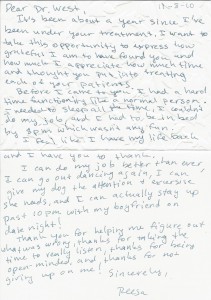 Dear Dr. West,
It's been about a year since I've
been under your treatment. I want to
take this opportunity to express how
grateful I am to have found you and
how much I appreciate how much time
and thought you put into treating
each of your patients.
Before I came to you I had a hard
time functioning like a normal person.
I needed naps all the time, I couldn't
do my job, and I had to be in bed
by 8pm which wasn't any fun.
I feel like I have my life back
and I have you to thank.
I can do my job better than ever
I can go out dancing again, I can
give my dog the attention & exercise
she needs, and I can actually stay up
past 10pm with my boyfriend on
date night!
Thank you for helping me figure out
what was wrong, thanks for taking the
time to really listen, thanks for being
open-minded, and thanks for not
giving up on me! Sincerely,
Reesa